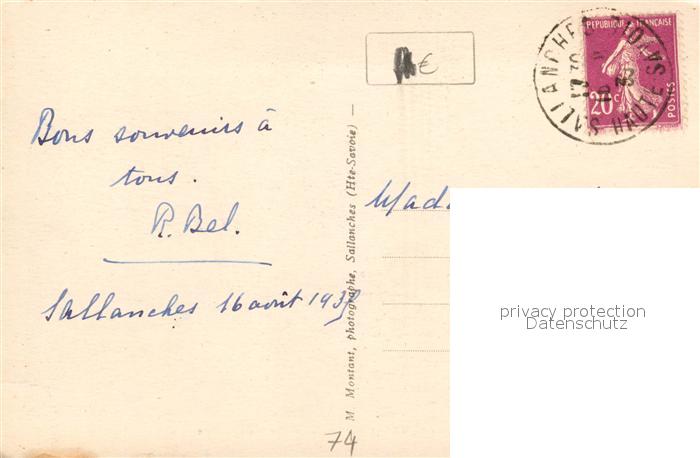 Bons souvenirs à
tous.
R. Bel.
Sallanches 16 août
M. Montant, photographe, Sallanches (Hte-Savoie) —
€
REPUBLIQUE FRANÇAISE
20c
POSTES
SALLANCHES HAUTE SAVOIE
Mada
74
privacy protection
Datenschutz